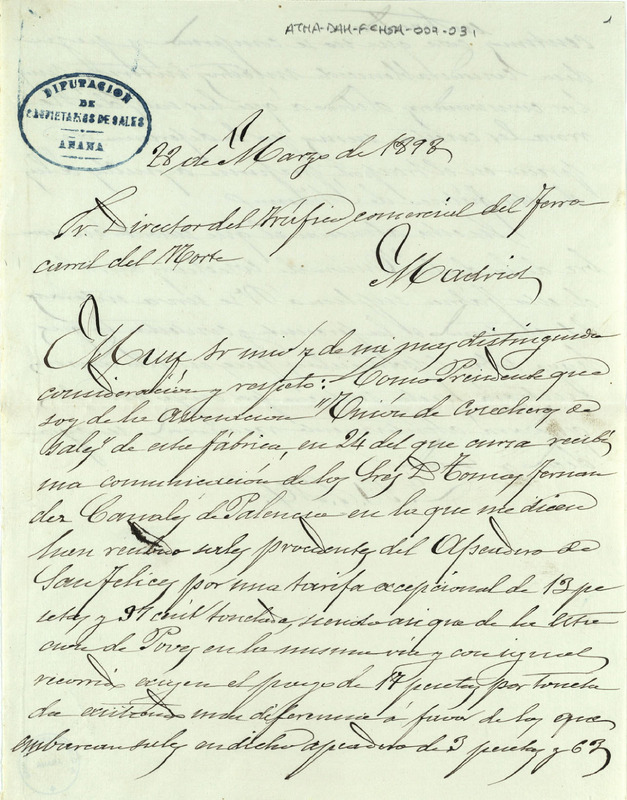 ATHA-DAH-FCHSA-009-031
1
DIPUTACION
DE
PROPIETARIOS DE SALES
AÑANA
28 de Marzo de 1898
Sr. Director del Tráfico comercial del Ferro
carril del Norte
Madrid
Muy Sr mio y de mi mas distinguida
consideración y respeto: Como Presidente que
soy de la Asociacion "Unión de Cosecheros de
Sales" de esta fábrica, en 24 del que cursa recibi
una comunicación de los Sres D Tomas Fernan
dez Canales de Palencia en la que me dicen
han recibido sales procedentes del Apeadero de
San Felices por una tarifa excepcional de 13 pe
setas y 37 cent tonelada, siendo asi que de la Esta
cion de Pobes en la misma via y con igual
recorrido exigen el pago de 17 pesetas por tonela
da existiendo una diferencia á favor de los que
embarcan sales en dicho apeadero de 3 pesetas y 63